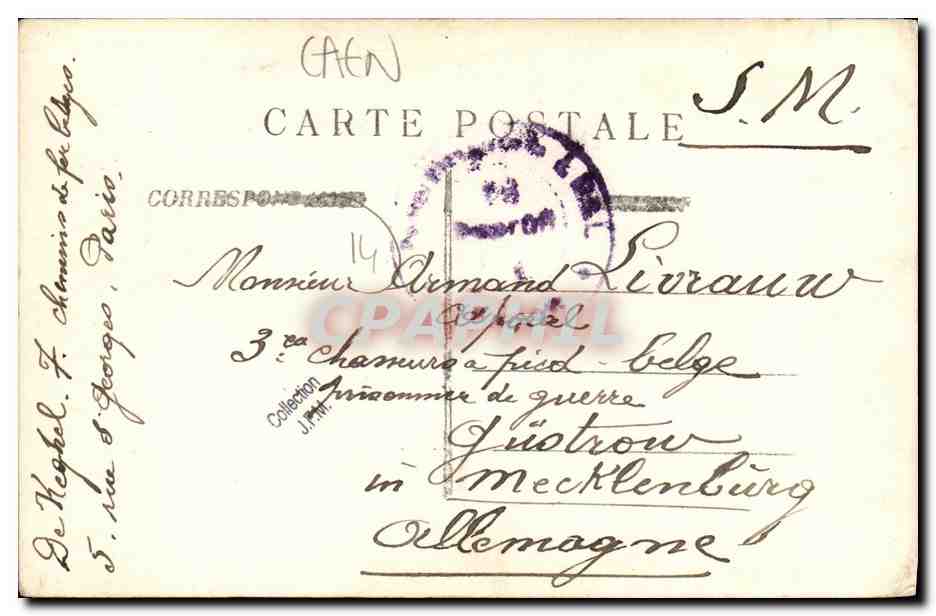 CAEN
S. M.
CARTE POSTALE
CORRESPONDANCE
14
Monsieur Armand Livrauw
Caporal
3e chasseurs à pied belge
prisonnier de guerre
Güstrow
in Mecklenburg
Allemagne
De Keghel. F. chemins de fer belges.
5. rue St Georges, Paris.
Collection
J.P.M.
CPAPHIL